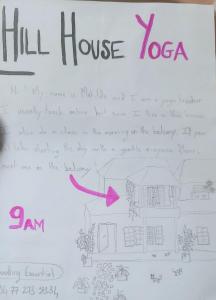 HILL HOUSE YOGA
Hi! My name is and I am a yoga teacher
I usually teach online but now I live in this house
also do a class in the morning on the balcony. If you
like starting the day with a gentle exercise. Please,
meet me on the balcony
9AM
Booking Essential